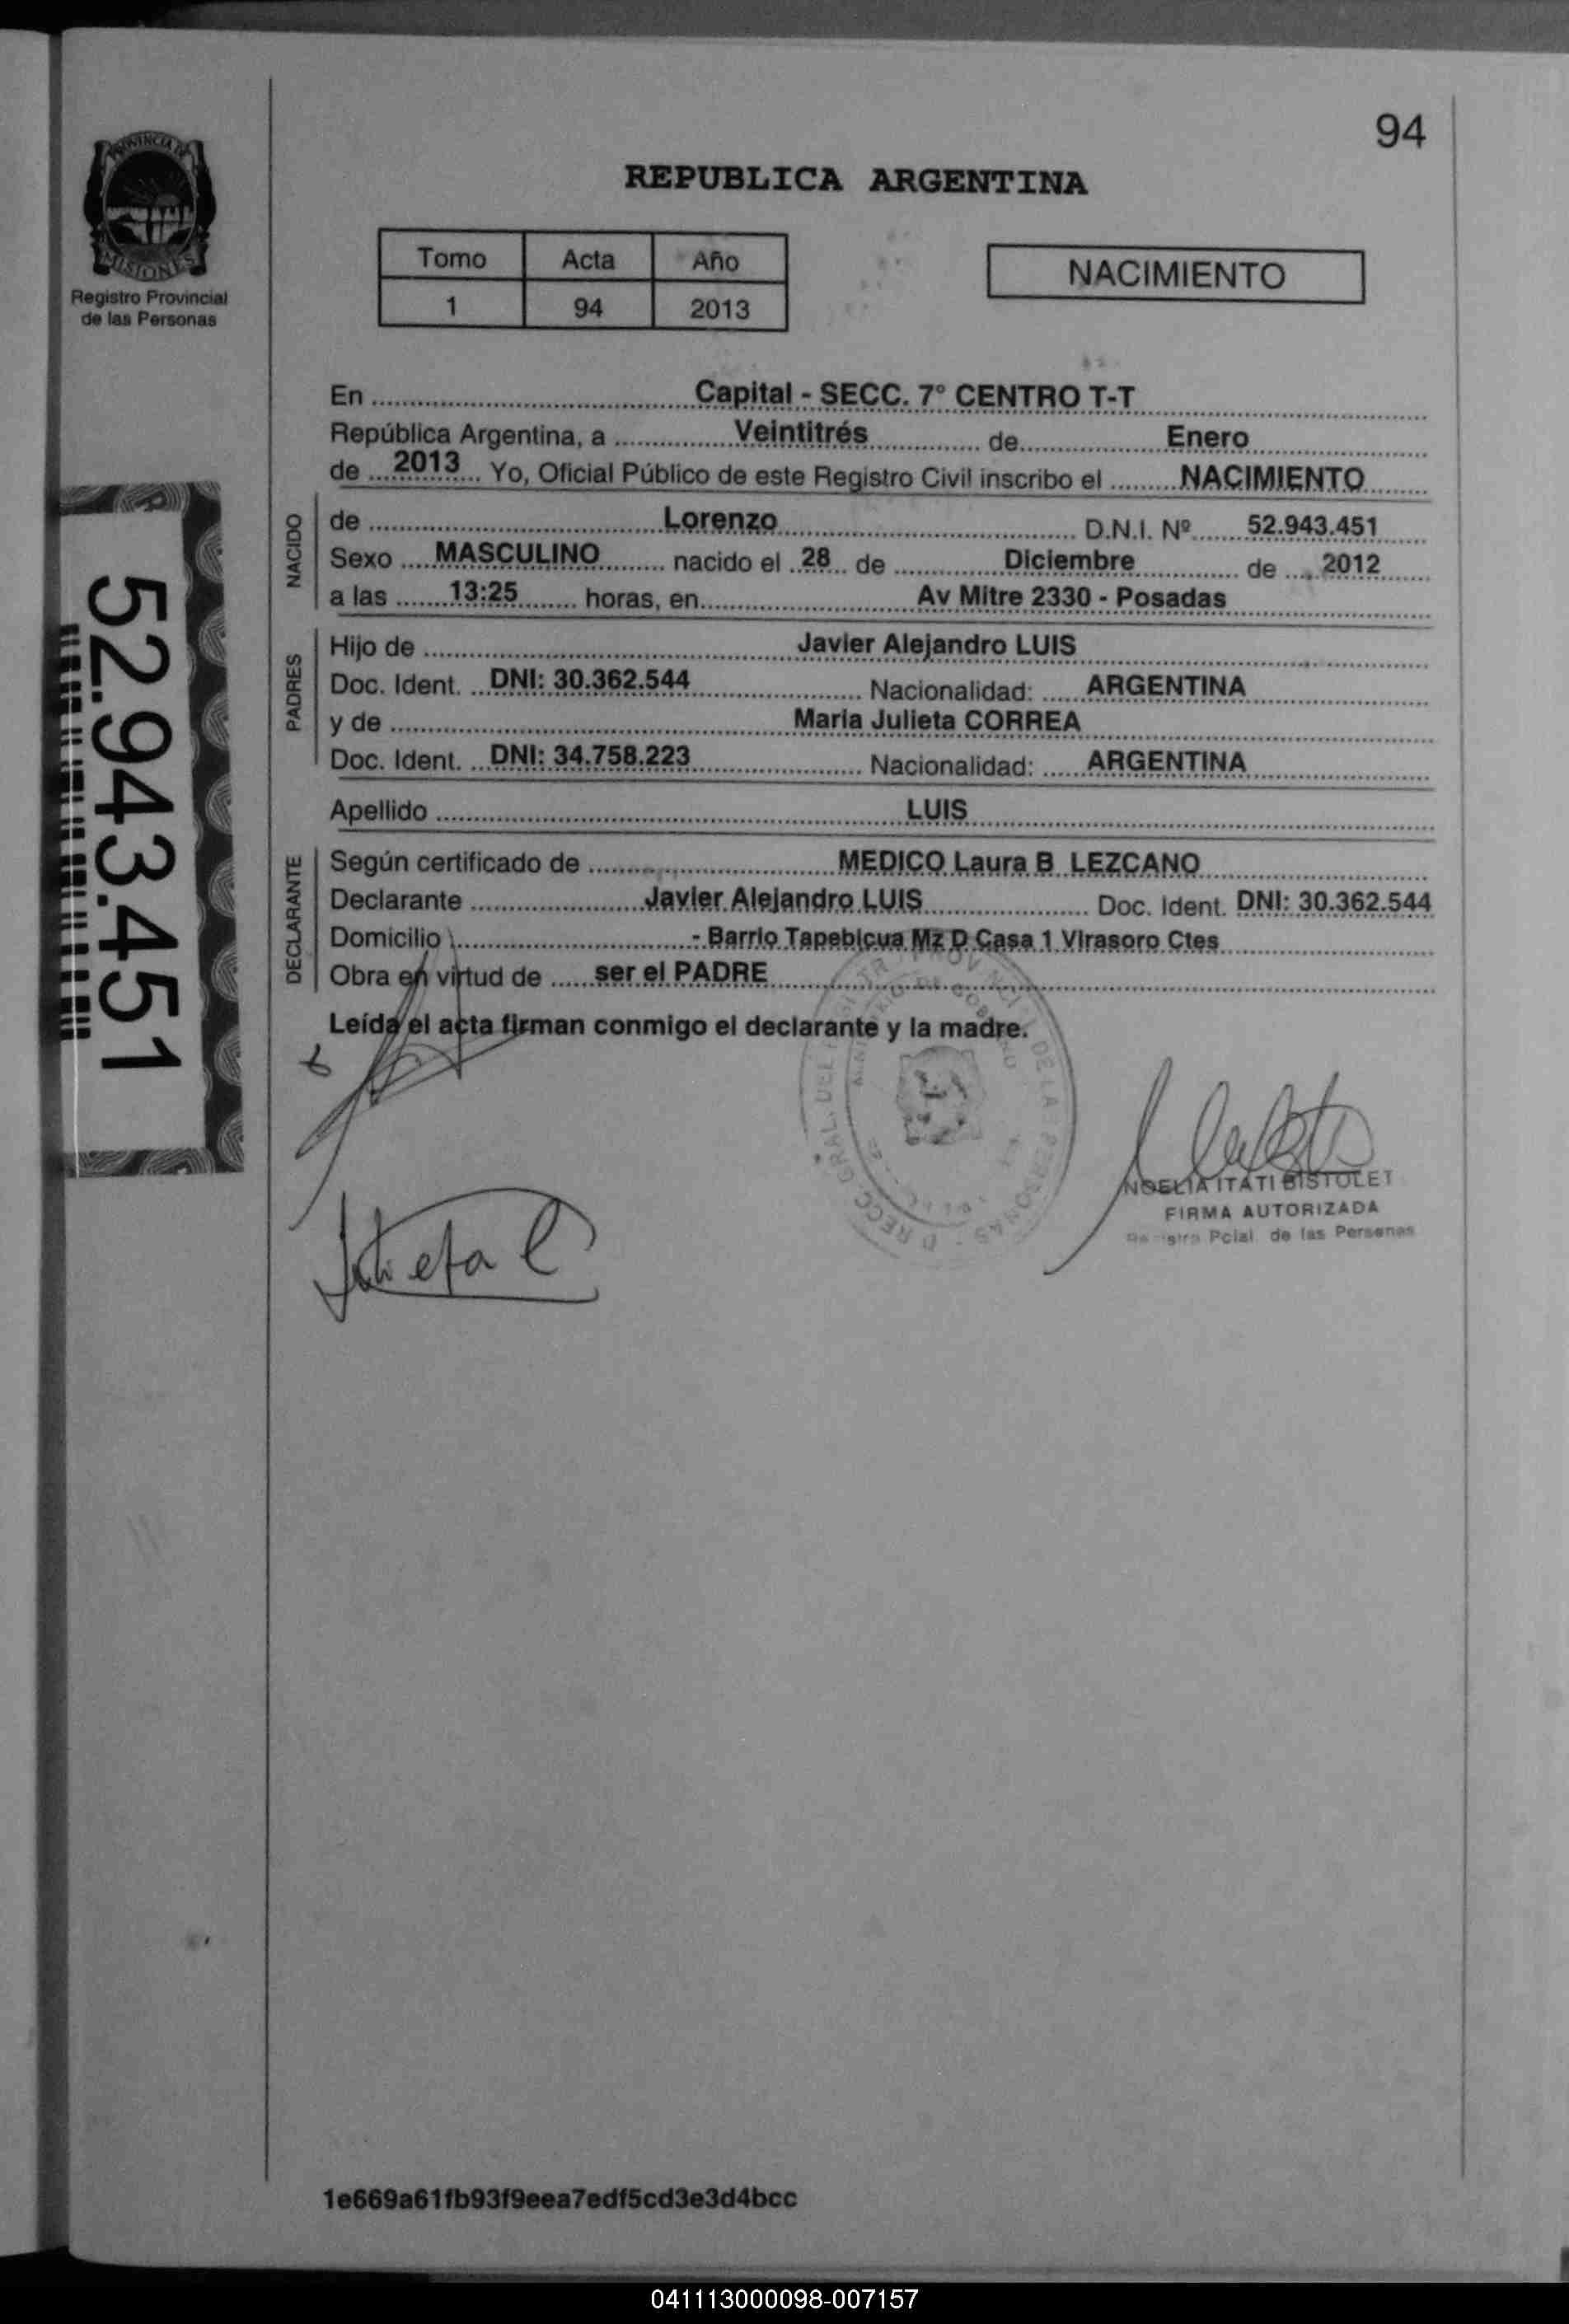 94
PROVINCIA DE
MISIONES
Registro Provincial
de las Personas
REPUBLICA ARGENTINA
Tomo Acta Año
1 94 2013
NACIMIENTO
En Capital - SECC. 7° CENTRO T-T
República Argentina, a Veintitrés de Enero
de 2013 Yo, Oficial Público de este Registro Civil inscribo el NACIMIENTO
NACIDO
de Lorenzo D.N.I. Nº 52.943.451
Sexo MASCULINO nacido el 28 de Diciembre de 2012
a las 13:25 horas, en Av Mitre 2330 - Posadas
PADRES
Hijo de Javier Alejandro LUIS
Doc. Ident. DNI: 30.362.544 Nacionalidad: ARGENTINA
y de Maria Julieta CORREA
Doc. Ident. DNI: 34.758.223 Nacionalidad: ARGENTINA
Apellido LUIS
DECLARANTE
Según certificado de MEDICO Laura B LEZCANO
Declarante Javier Alejandro LUIS Doc. Ident. DNI: 30.362.544
Domicilio - Barrio Tapebicua Mz D Casa 1 Virasoro Ctes
Obra en virtud de ser el PADRE
Leída el acta firman conmigo el declarante y la madre.
52.943.451
Julieta C
NOELIA ITATI BISTOLET
FIRMA AUTORIZADA
Registro Pcial. de las Personas
1e669a61fb93f9eea7edf5cd3e3d4bcc
041113000098-007157